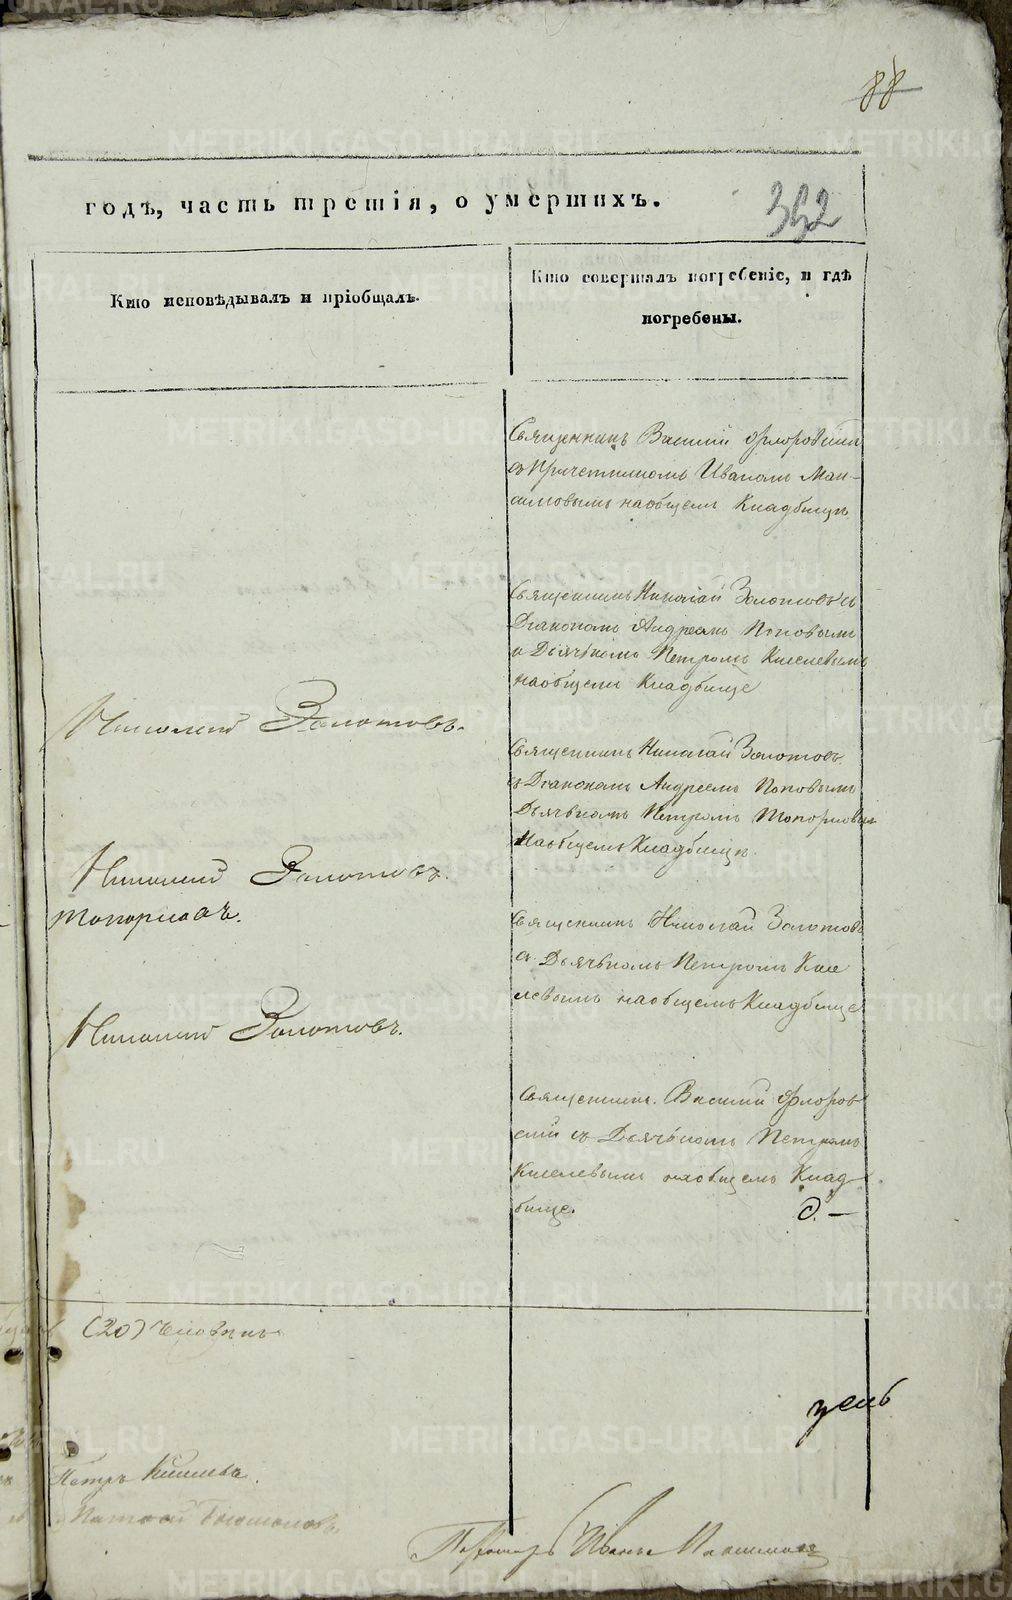 88
годъ, часть третія, о умершихъ.
352
Кто исповѣдывалъ и пріобщалъ.
Кто совершалъ погребеніе, и гдѣ
погребены.
Священникъ Василій Флоровскій
съ Причетникомъ Иваномъ Мак-
симовымъ на общемъ Кладбищѣ
Священникъ Николай Золотовъ съ
Діакономъ Андреемъ Поповымъ
и Дьячкомъ Петромъ Киселевымъ
на общемъ Кладбище
Николай Золотовъ.
Священникъ Николай Золотовъ
съ Діакономъ Андреемъ Поповымъ
Дьячкомъ Петромъ Топорковым
На общемъ Кладбищѣ.
Николай Золотовъ.
Топорковъ.
Священникъ Николай Золотовъ
съ Дьячкомъ Петромъ Кисе
левымъ на общемъ Кладбище
Николай Золотовъ.
Священникъ Василій Флоров
скій съ Дьячкомъ Петромъ
Киселевымъ на общемъ Клад-
бище.
(20) человѣкъ
Петръ Киселевъ.
Иванъ
METRIKI.GASO-URAL.RU